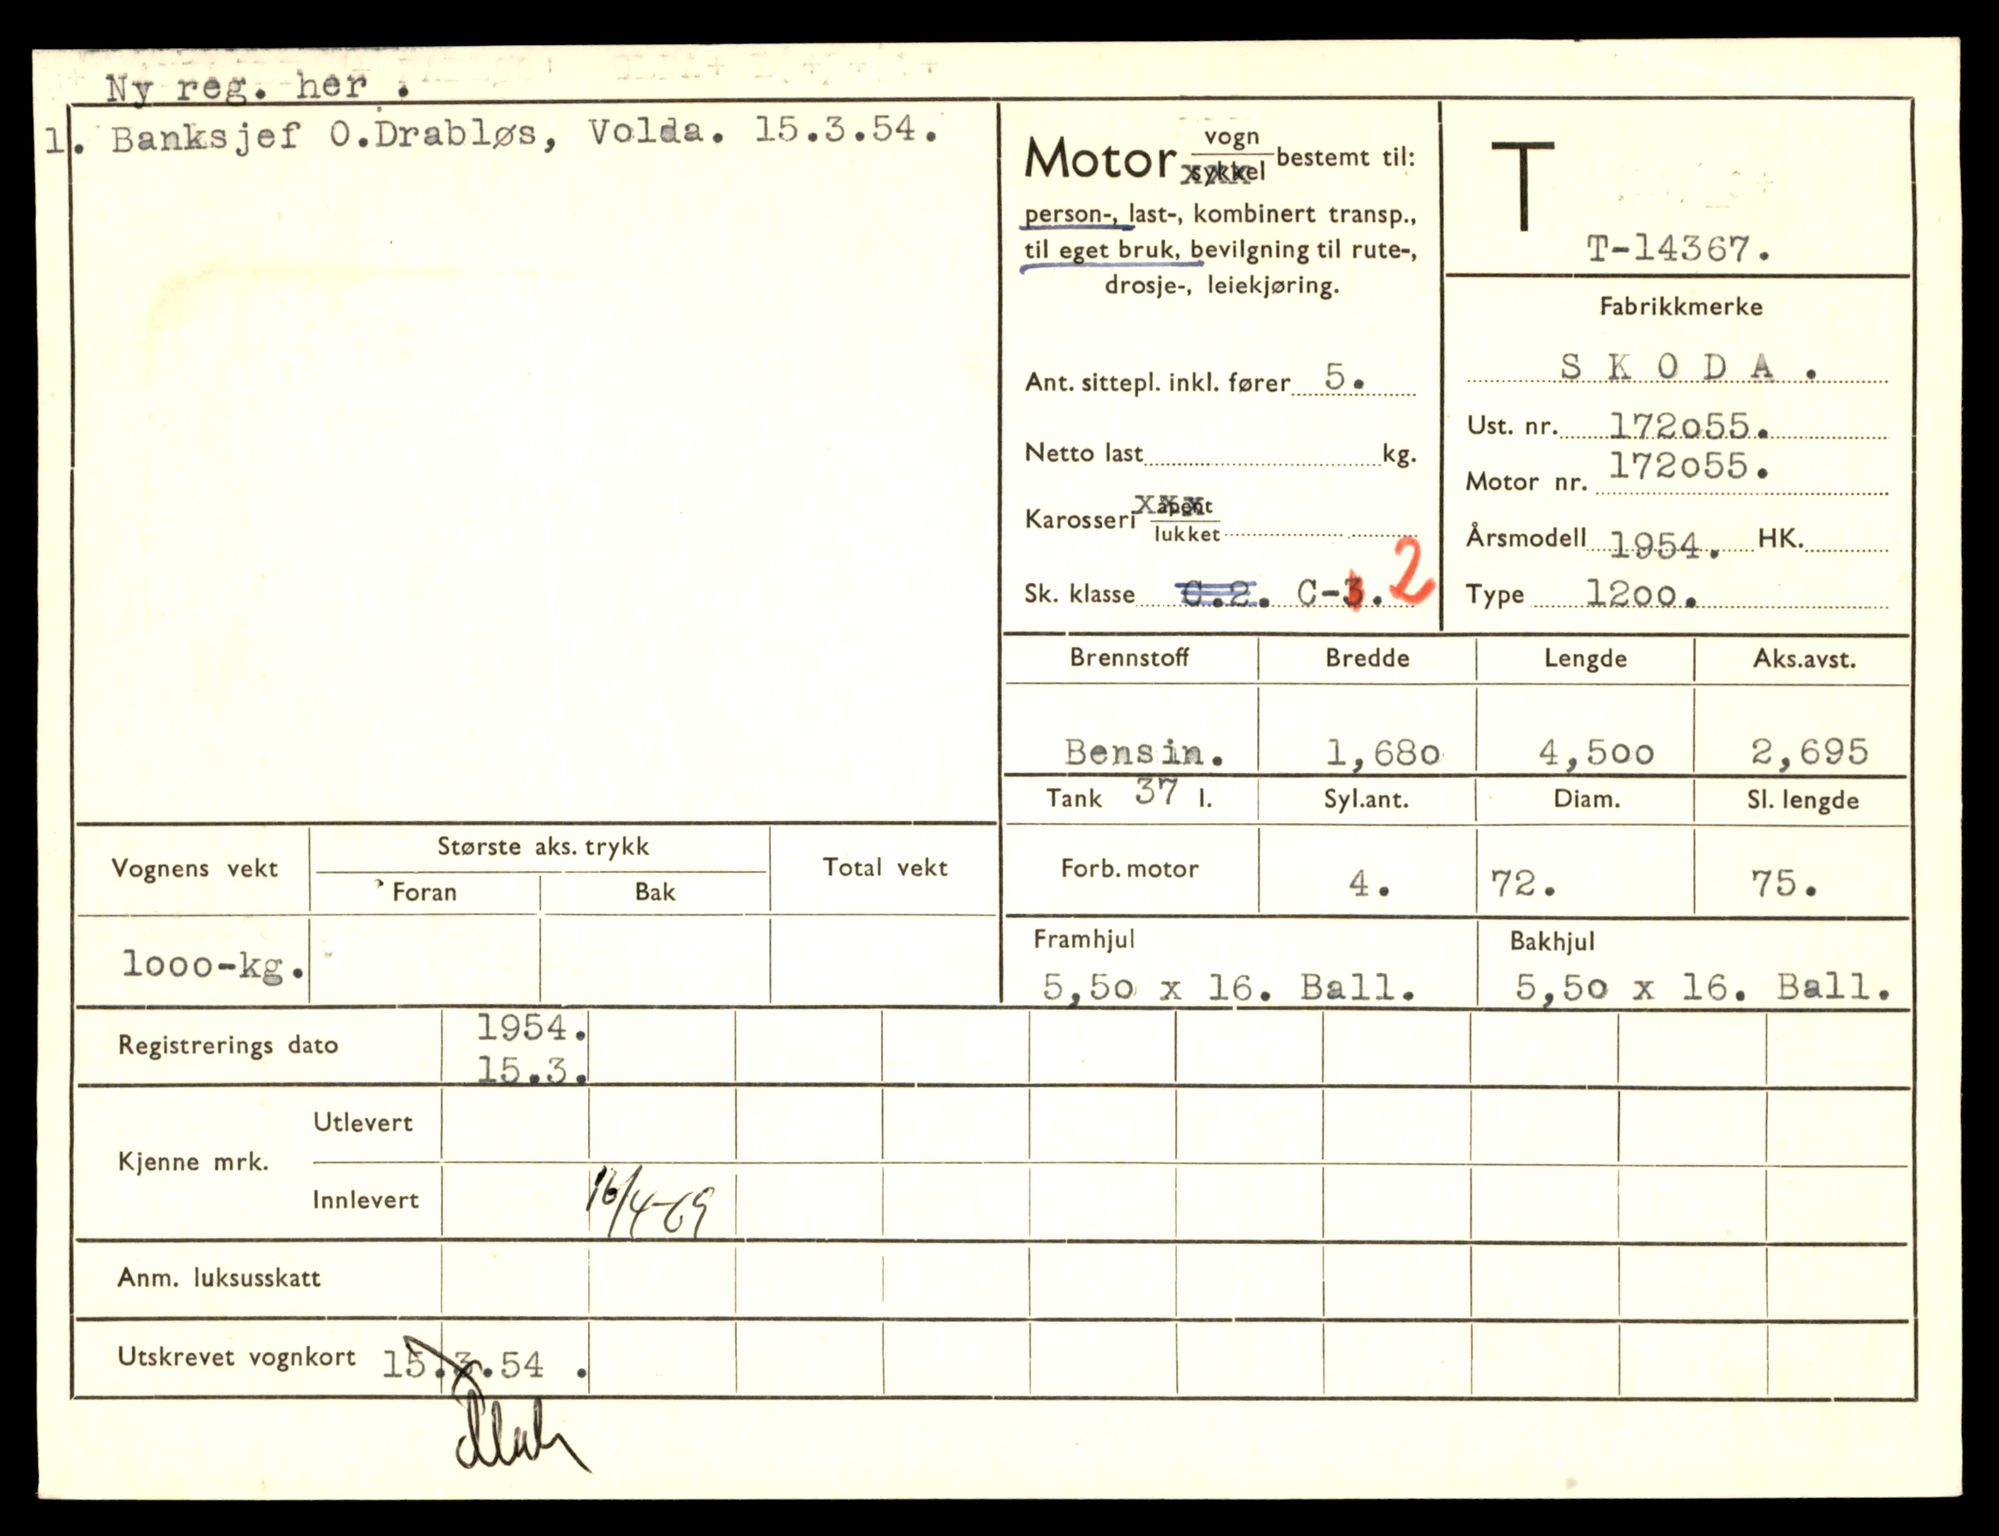 Ny reg. her .
1. Banksjef O.Drabløs, Volda. 15.3.54.
Motor vogn
sykkel bestemt til:
person-, last-, kombinert transp.,
til eget bruk, bevilgning til rute-,
drosje-, leiekjøring.
Ant. sittepl. inkl. fører 5.
Netto last kg.
Karosseri åpent
lukket
Sk. klasse C.2. C-3. 2
T
T-14367.
Fabrikkmerke
S K O D A .
Ust. nr. 172o55.
Motor nr. 172o55.
Årsmodell 1954. HK.
Type 12oo.
Brennstoff Bredde Lengde Aks.avst.
Bensin. 1,68o 4,5oo 2,695
Tank 37 l. Syl.ant. Diam. Sl. lengde
Forb. motor 4. 72. 75.
Framhjul Bakhjul
5,5o x 16. Ball. 5,5o x 16. Ball.
Vognens vekt Største aks. trykk Total vekt
Foran Bak
1ooo-kg.
Registrerings dato 1954.
15.3.
Kjenne mrk. Utlevert
Innlevert 16/4-69
Anm. luksusskatt
Utskrevet vognkort 15.3.54 .